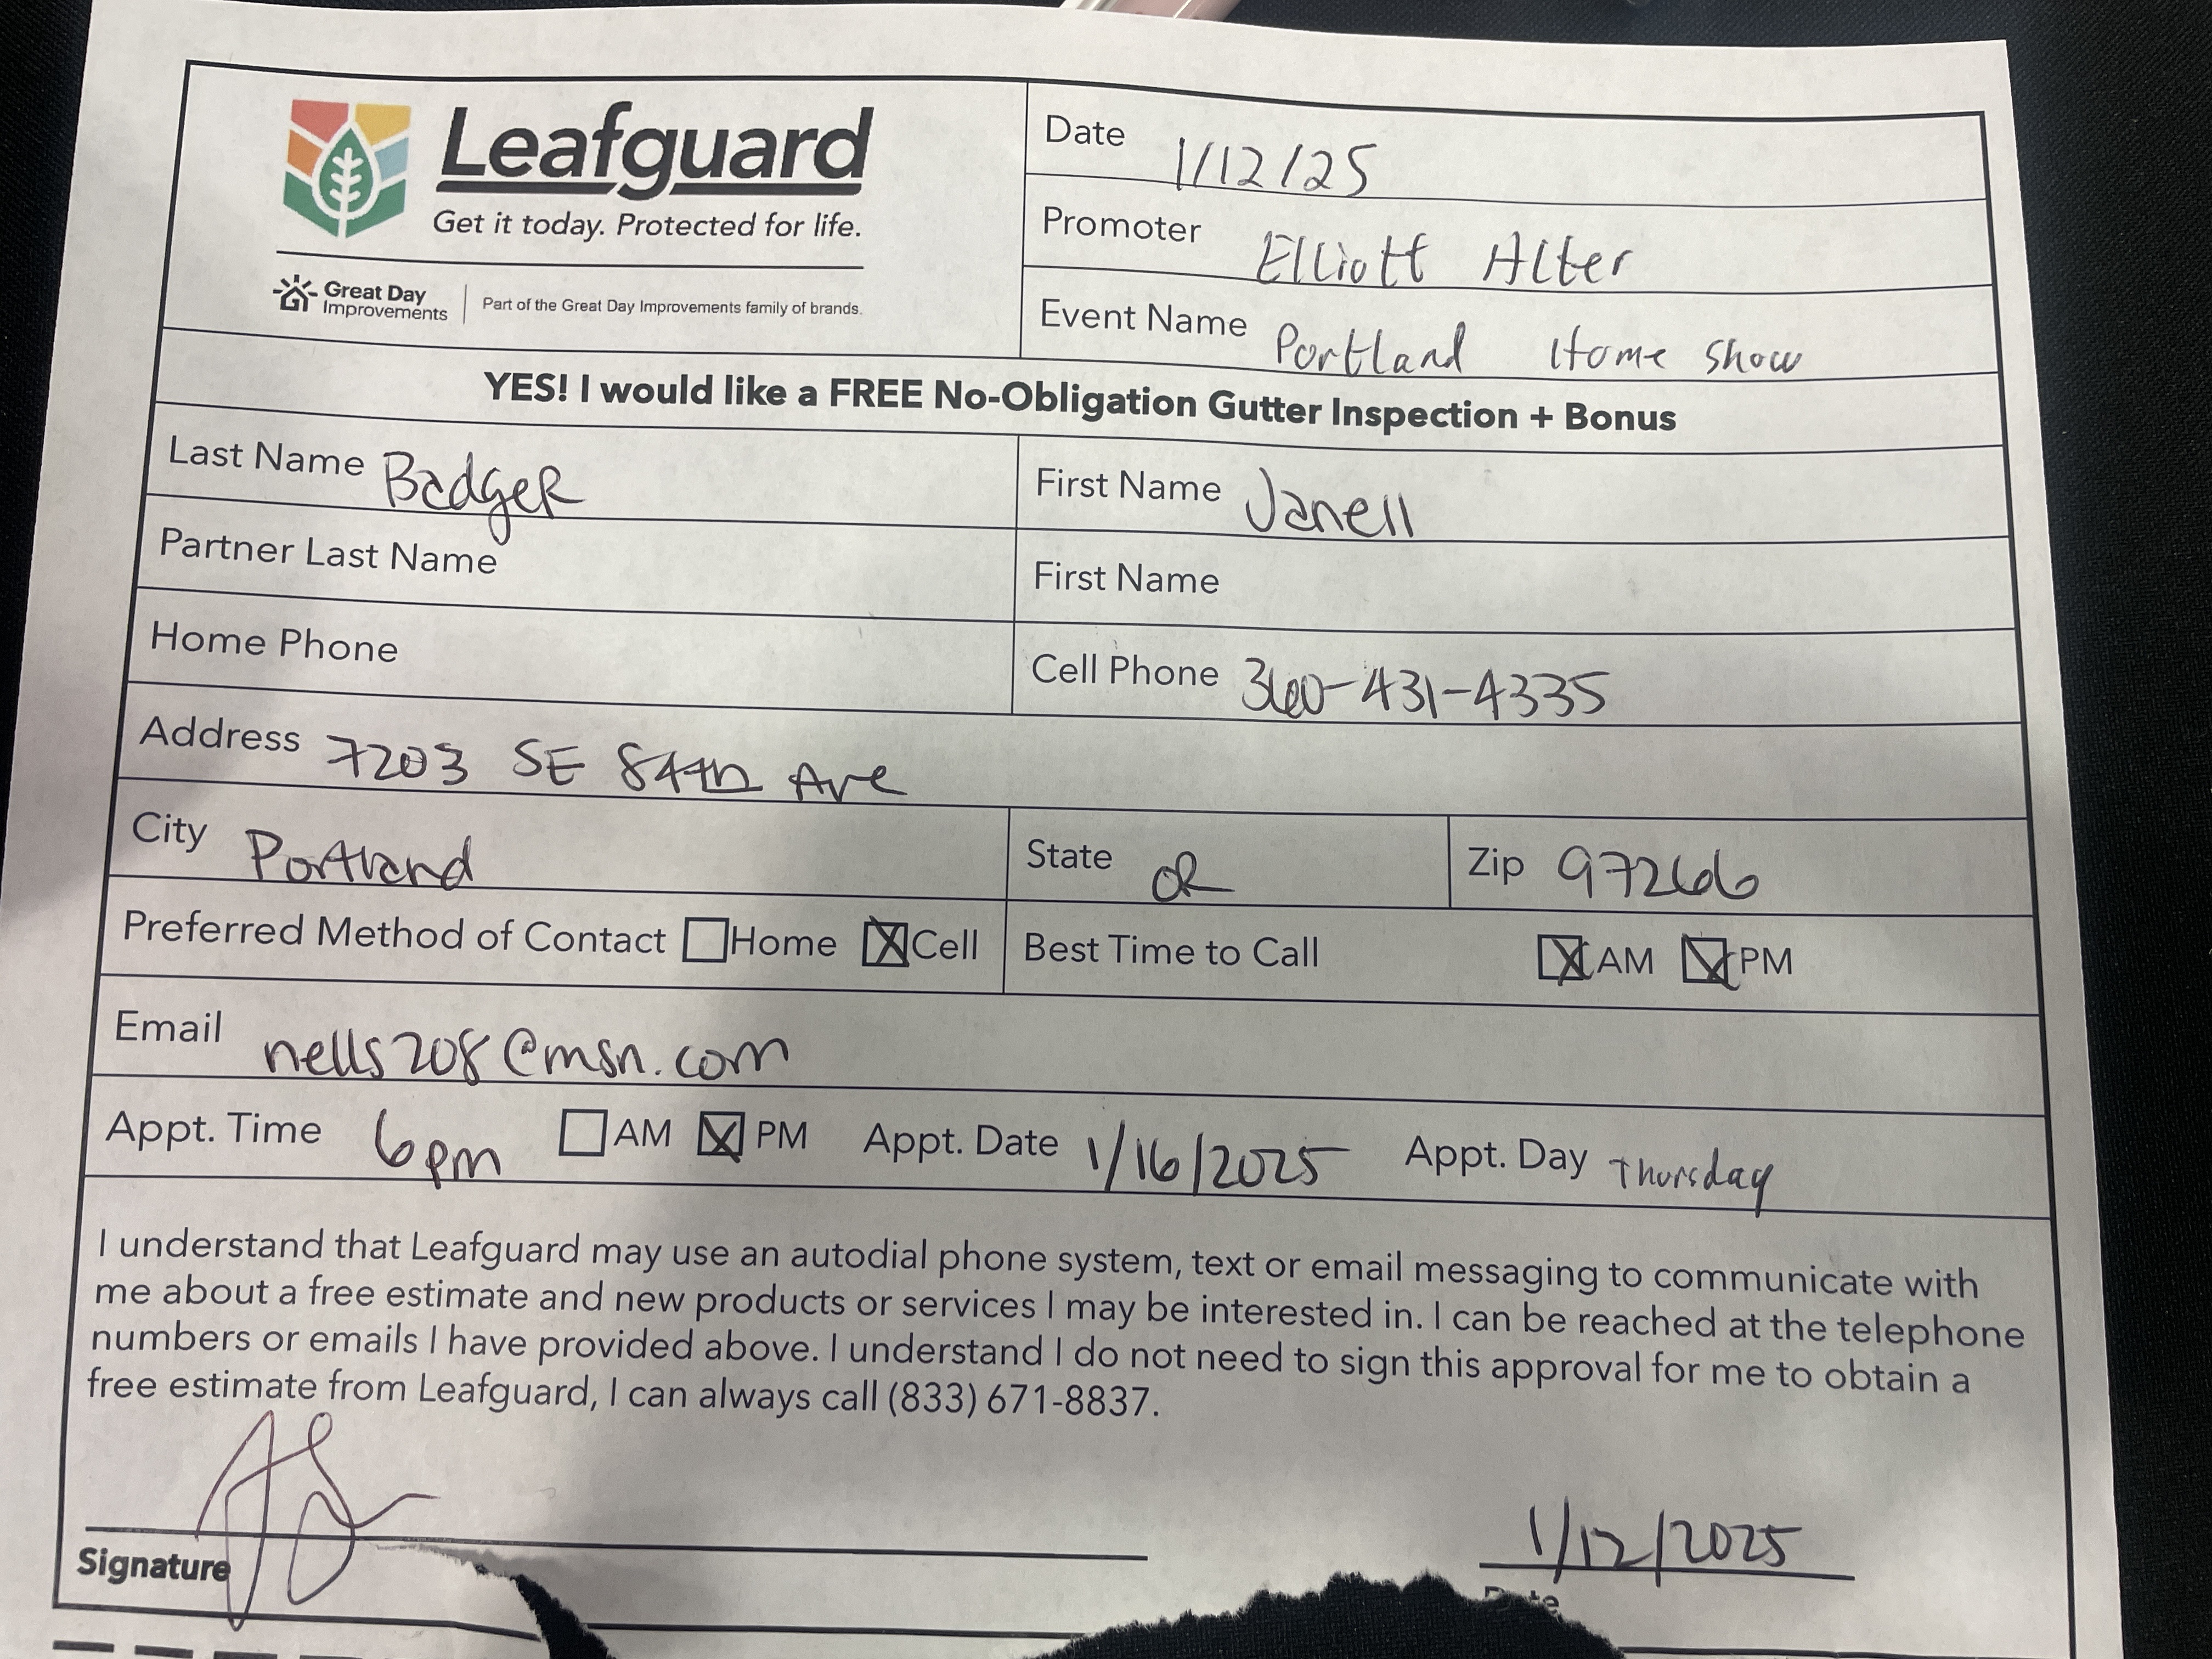 Leafguard
Get it today. Protected for life.
Great Day Improvements | Part of the Great Day Improvements family of brands.
Date 1/12/25
Promoter Elliott Alter
Event Name Portland Home Show
YES! I would like a FREE No-Obligation Gutter Inspection + Bonus
Last Name Badger First Name Janell
Partner Last Name First Name
Home Phone Cell Phone 360-431-4335
Address 7203 SE 84th Ave
City Portland State OR Zip 97266
Preferred Method of Contact ☐ Home ☒ Cell Best Time to Call ☒ AM ☒ PM
Email nells208@msn.com
Appt. Time 6pm ☐ AM ☒ PM Appt. Date 1/16/2025 Appt. Day Thursday
I understand that Leafguard may use an autodial phone system, text or email messaging to communicate with
me about a free estimate and new products or services I may be interested in. I can be reached at the telephone
numbers or emails I have provided above. I understand I do not need to sign this approval for me to obtain a
free estimate from Leafguard, I can always call (833) 671-8837.
1/12/2025
Signature Date